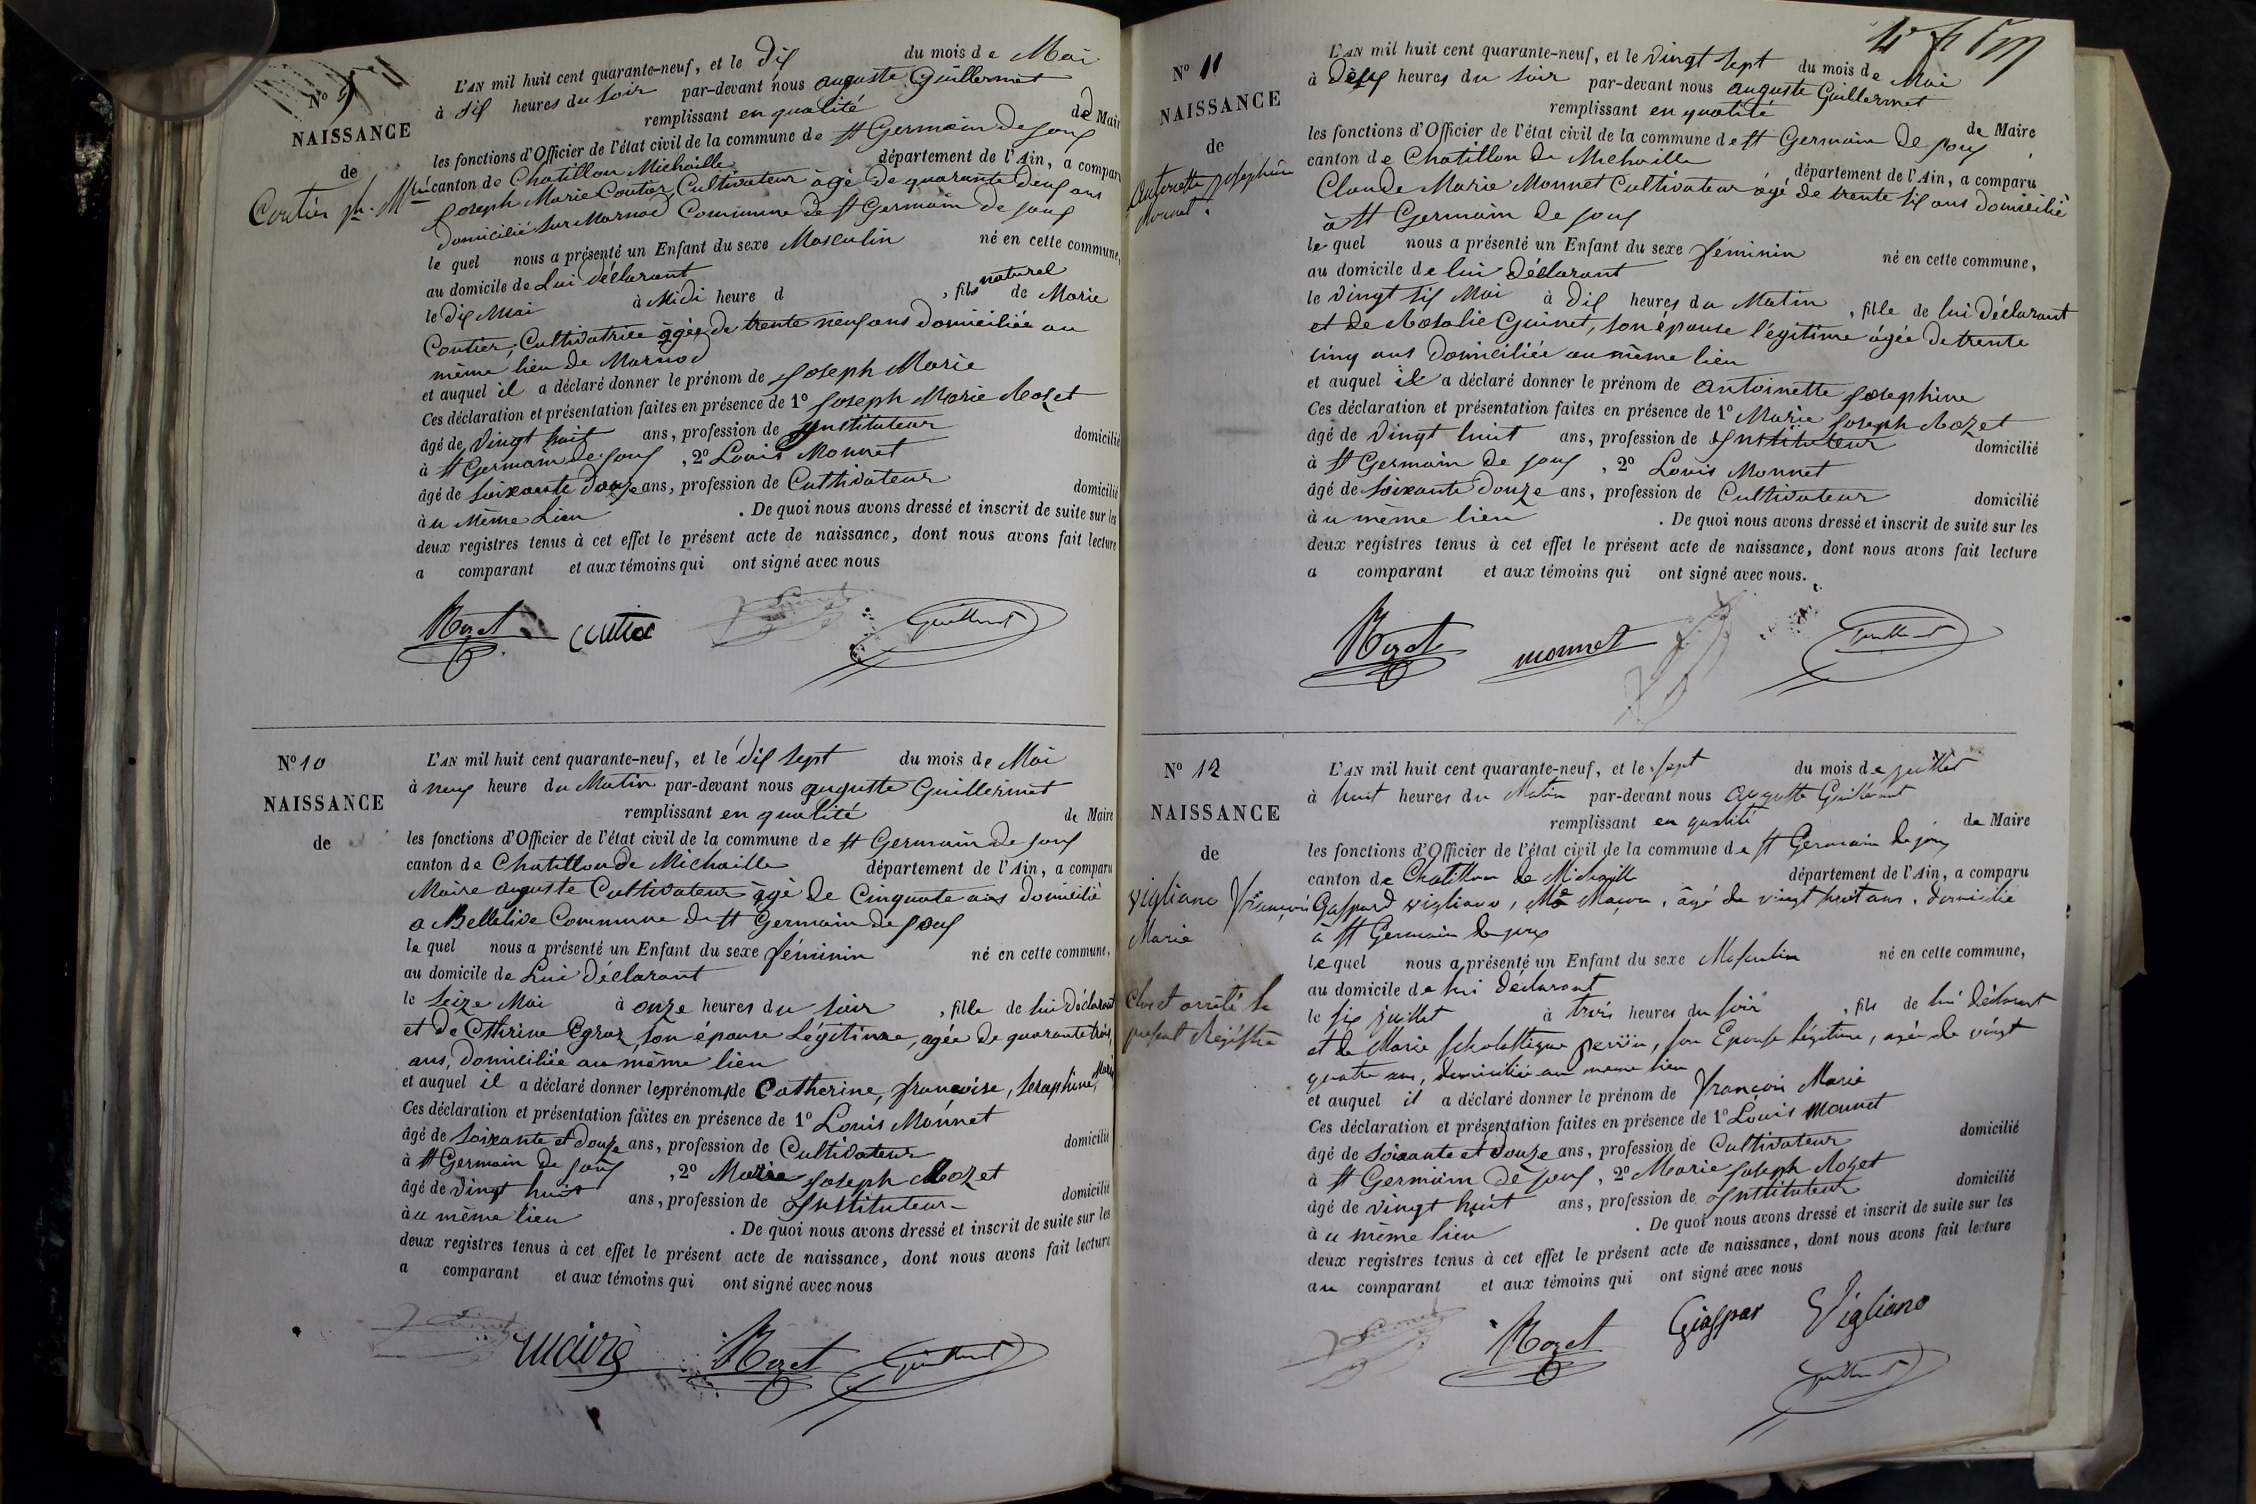 N° 9
NAISSANCE
de
Coutier ph. Mrie
L'AN mil huit cent quarante-neuf, et le Dix du mois de Mai
à Six heures du Soir par-devant nous auguste Guillermet
remplissant en qualité de Maire
les fonctions d'Officier de l'état civil de la commune de St Germain de Joux
canton de Chatillon Michaille département de l'Ain, a comparu
Joseph Marie Coutier, Cultivateur âgé de quarante deux ans
domicilié sur Marnod Commune de St Germain de Joux
le quel nous a présenté un Enfant du sexe Masculin né en cette commune,
au domicile de Lui Déclarant
le Dix Mai à Midi heure d , fils naturel de Marie
Coutier, Cultivatrice âgée de trente neuf ans domiciliée au
même lieu de Marnod
et auquel il a déclaré donner le prénom de Joseph Marie
Ces déclaration et présentation faites en présence de 1° Joseph Marie Rozet
âgé de vingt huit ans, profession de Instituteur domicilié
à St Germain de Joux , 2° Louis Monnet
âgé de soixante douze ans, profession de Cultivateur domicilié
à u Même Lieu . De quoi nous avons dressé et inscrit de suite sur les
deux registres tenus à cet effet le présent acte de naissance, dont nous avons fait lecture
a comparant et aux témoins qui ont signé avec nous
Rozet coutier Guillermet
N° 10
NAISSANCE
de
L'AN mil huit cent quarante-neuf, et le dix sept du mois de Mai
à neuf heure du Matin par-devant nous auguste Guillermet
remplissant en qualité de Maire
les fonctions d'Officier de l'état civil de la commune de St Germain de Joux
canton de Chatillon de Michaille département de l'Ain, a comparu
Maire auguste Cultivateur âgé de Cinquante ans domicilié
a Bellelive Commune de St Germain de Joux
le quel nous a présenté un Enfant du sexe féminin né en cette commune,
au domicile de Lui Déclarant
le Seize Mai à onze heures du soir , fille de lui déclarant
et de Cthrine Egraz, son épouse Légitime, agée de quarante trois
ans, domiciliée au même lieu
et auquel il a déclaré donner les prénoms de Catherine, françoise, Seraphine, Marie
Ces déclaration et présentation faites en présence de 1° Louis Monnet
âgé de soixante et douze ans, profession de Cultivateur domicilié
à St Germain de Joux , 2° Marie Joseph Rozet
âgé de vingt huit ans, profession de Instituteur domicilié
à u même lieu . De quoi nous avons dressé et inscrit de suite sur les
deux registres tenus à cet effet le présent acte de naissance, dont nous avons fait lecture
a comparant et aux témoins qui ont signé avec nous
maire Rozet Guillermet
N° 11
NAISSANCE
de
Antoinette Josephine
Monnet.
L'AN mil huit cent quarante-neuf, et le vingt sept du mois de Mai
à Deux heures du soir par-devant nous auguste Guillermet
remplissant en qualité de Maire
les fonctions d'Officier de l'état civil de la commune de St Germain de Joux
canton de Chatillon de Michaille département de l'Ain, a comparu
Claude Marie Monnet Cultivateur âgé de trente six ans domicilié
à St Germain de Joux
le quel nous a présenté un Enfant du sexe féminin né en cette commune,
au domicile de lui Déclarant
le vingt six Mai à dix heures du Matin , fille de lui déclarant
et de Rosalie Guinet, son épouse légitime âgée de trente
cinq ans Domiciliée au même lieu
et auquel il a déclaré donner le prénom de Antoinette Josephine
Ces déclaration et présentation faites en présence de 1° Marie Joseph Rozet
âgé de vingt huit ans, profession de Instituteur domicilié
à St Germain de Joux , 2° Louis Monnet
âgé de soixante Douze ans, profession de Cultivateur domicilié
à u même lieu . De quoi nous avons dressé et inscrit de suite sur les
deux registres tenus à cet effet le présent acte de naissance, dont nous avons fait lecture
a comparant et aux témoins qui ont signé avec nous.
Rozet monnet Guillermet
N° 12
NAISSANCE
de
Vigliano François
Marie
Clos et arrêté le
présent Régistre
L'AN mil huit cent quarante-neuf, et le sept du mois de juillet
à huit heures du Matin par-devant nous Auguste Guillermet
remplissant en qualité de Maire
les fonctions d'Officier de l'état civil de la commune de St Germain de joux
canton de Chatillon de Michaille département de l'Ain, a comparu
Gaspard vigliano, Me Maçon, âgé de vingt huit ans. domicilié
à St Germain de joux
le quel nous a présenté un Enfant du sexe Masculin né en cette commune,
au domicile de lui déclarant
le six juillet à trois heures du soir , fils de lui déclarant
et de Marie Scholastique perrin, son Epouse légitime, agée de vingt
quatre ans, domiciliée au meme lieu
et auquel il a déclaré donner le prénom de François Marie
Ces déclaration et présentation faites en présence de 1° Louis Monnet
âgé de Soixante et Douze ans, profession de Cultivateur domicilié
à St Germain de Joux , 2° Marie Joseph Rozet
âgé de vingt huit ans, profession de Instituteur domicilié
à u même lieu . De quoi nous avons dressé et inscrit de suite sur les
deux registres tenus à cet effet le présent acte de naissance, dont nous avons fait lecture
au comparant et aux témoins qui ont signé avec nous
Rozet Giaspar Vigliano
Guillermet